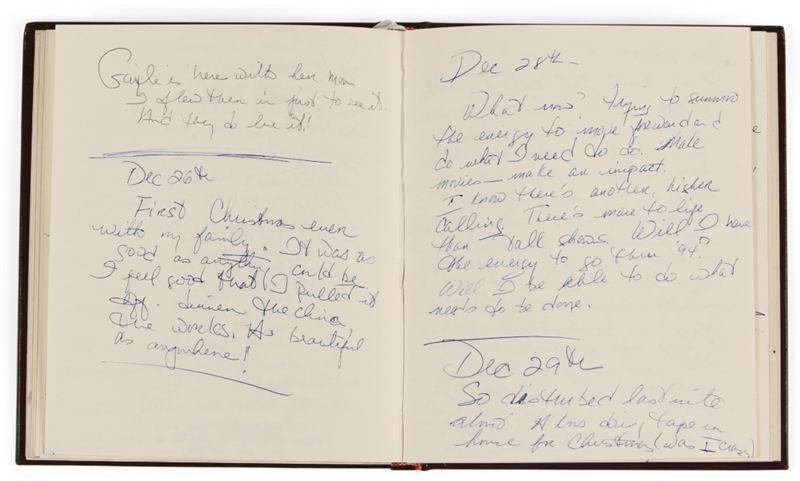 Gayle is here with her mom
I flew them in just to see it.
And they do be it!
Dec 26th
First Christmas ever
with my family. It was as
good as anything could be
I feel good that I pulled it
off. dinner the china,
the works. As beautiful
as anywhere!
Dec 28th -
What now? Trying to summon
the energy to move forward and
do what I need to do. Make
movies - make an impact.
I know there's another, higher
calling. There's more to life
than Talk shows. Will I have
the energy to go thru '94?
Will I be able to do what
needs to be done.
Dec 29th
So disturbed last nite
about tape in
house for Christmas (was I crazy